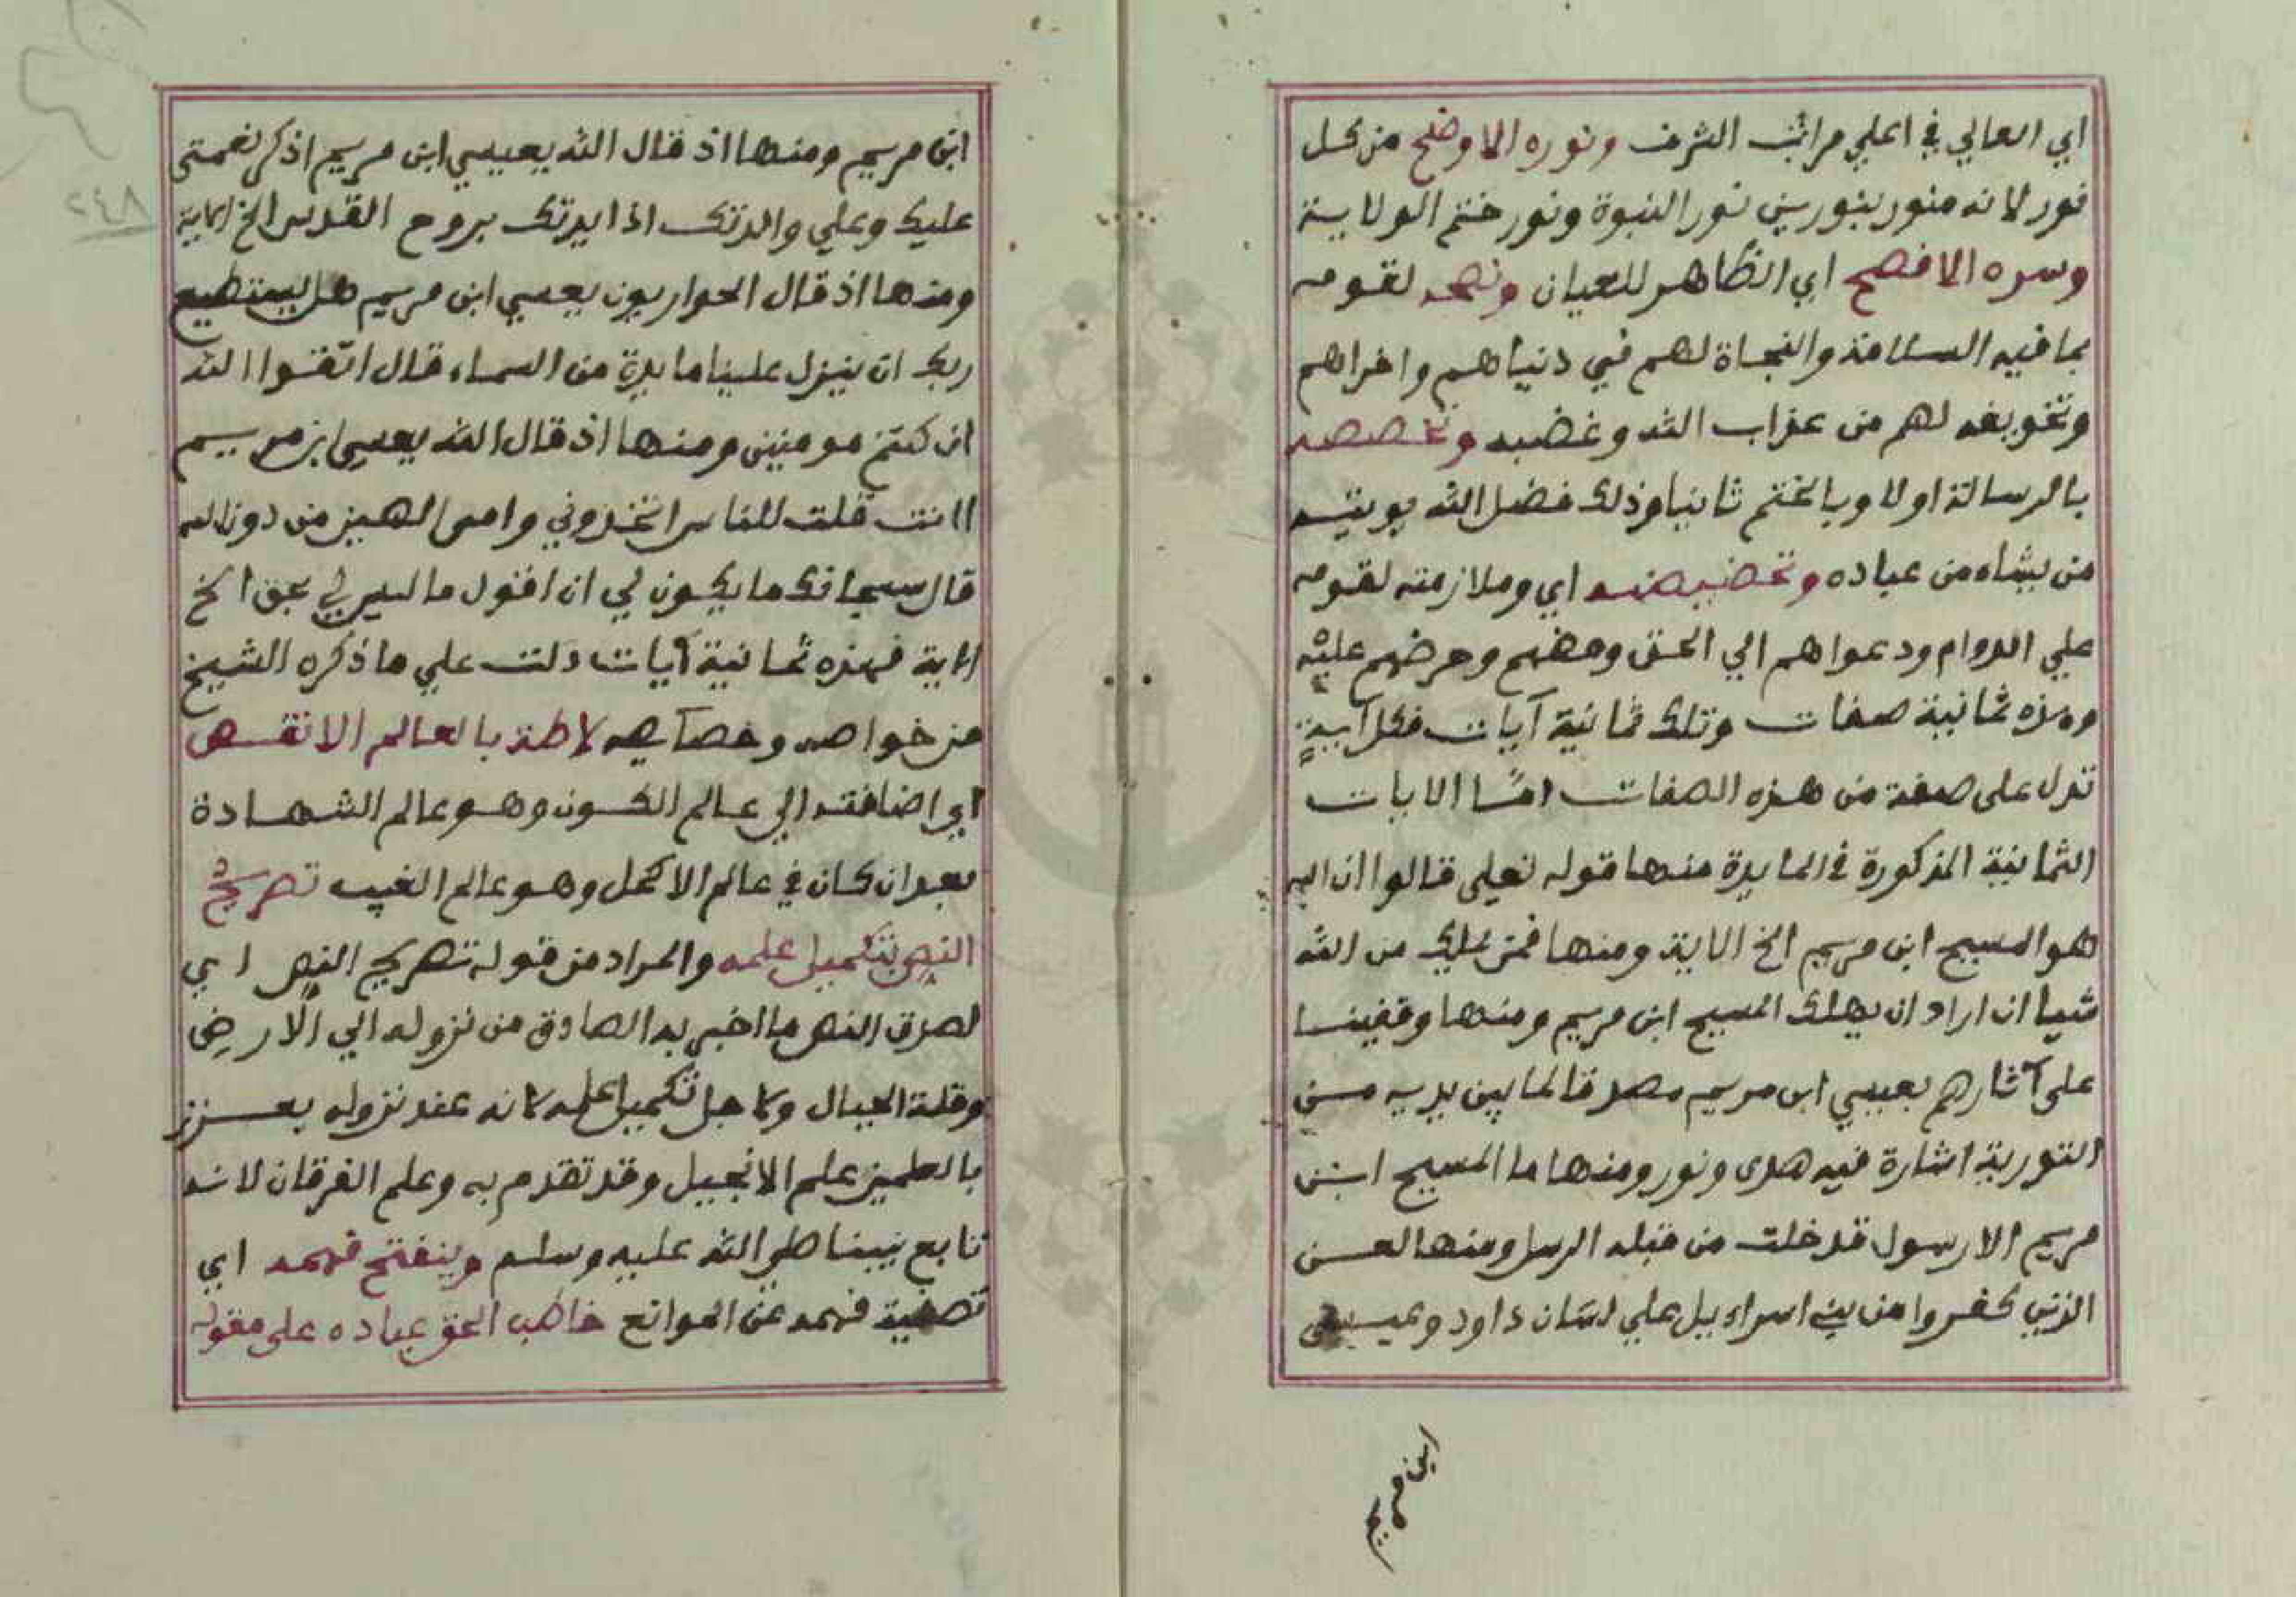 اي العالي في اعلي مراتب الشرف ونوره الاوضح من كل
نور لانه منور بنورين نور النبوة ونور ختم الولاية
وسره الافصح اي الظاهر للعيان ونصحه لقومه
بما فيه السلامة والنجاة لهم في دنياهم واخراهم
وتخويفه لهم من عذاب الله وغضبه وتخصصه
بالرسالة اولا وبالختم ثانيا وذلك فضل الله يوتيه
من يشاء من عباده وتحضيضه اي وملازمته لقومه
علي الدوام ودعواهم الي الحق وحضهم وحرضهم عليه
وهذه ثمانية صفات وتلك ثمانية آيات فكل آية
تدل على صفة من هذه الصفات امّا الايات
الثمانية المذكورة في المايدة منها قوله تعلى قالوا ان الله
هو المسيح ابن مريم الخ الاية ومنها فمن يملك من الله
شيا ان اراد ان يهلك المسيح ابن مريم ومنها وقفينا
على آثارهم بعيسي ابن مريم مصدقا لما بين يديه من
التورية اشارة فيه هدى ونور ومنها ما المسيح ابن
مريم الا رسول قد خلت من قبله الرسل ومنها لعن
الذين كفروا من بني اسراءيل علي لسان داود وعيسى
ابن مريم
٢٤٨
ابن مريم ومنها اذ قال الله يعيسي ابن مريم اذكر نعمتي
عليك وعلي والدتك اذ ايدتك بروح القدس الخ الاية
ومنها اذ قال الحواريون يعيسي ابن مريم هل يستطيع
ربك ان ينزل علينا مايدة من السماء قال اتّقوا الله
ان كنتم مومنين ومنها اذ قال الله يعيسى ابن مريم
اانت قلت للناس اتخذوني وامى الهين من دون الله
قال سبحانك ما يكون لي ان اقول ما ليس لي بحق الخ
الاية فهذه ثمانية آيات دلت علي ما ذكره الشيخ
من خواصه وخصآيصه لاطة بالعالم الانقص
اي اضافته الي عالم الكون وهو عالم الشهادة
بعد ان كان في عالم الاكمل وهو عالم الغيب تصريح
النص بتكميل علمه والمراد من قوله تصريح النص اي
لصدق النص ما اخبر به الصادق من نزوله الي الارض
وقلة الجبال ولاجل تكميل علمه لانه عند نزوله يعزز
بالعلمين علم الانجيل وقد تقدم به وعلم الفرقان لانه
تابع نبينا صلي الله عليه وسلم وينفتح فهمه اي
تصفية فهمه عن الموانع خاطب الحق عباده على مقوله